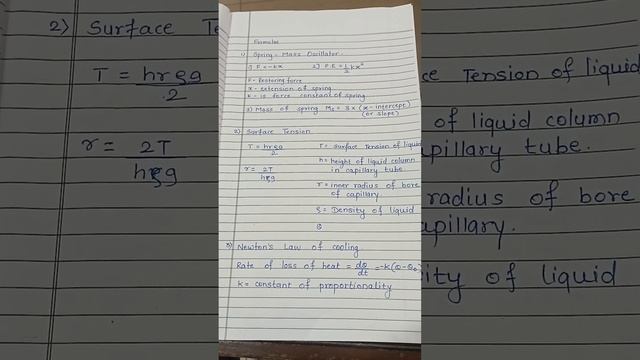 Formulas
1) Spring-Mass Oscillator.
1) F = -kx 2) P.E = 1/2 kx²
F - Restoring force
x - extension of spring
k - is force constant of spring
3) Mass of spring Ms = 3 x (x-intercept)
(or slope)
2) Surface Tension
T = hrρg/2 T = surface Tension of liquid
h = height of liquid column
in capillary tube.
r = 2T/hρg
r = inner radius of bore
of capillary.
ρ = Density of liquid
3) Newton's Law of cooling.
Rate of loss of heat = dθ/dt = -k(θ-θ₀)
k = constant of proportionality
2) Surface Te
T = hrρg/2
r = 2T/hρg
ce Tension of liquid
of liquid column
pillary tube.
radius of bore
apillary.
ity of liquid